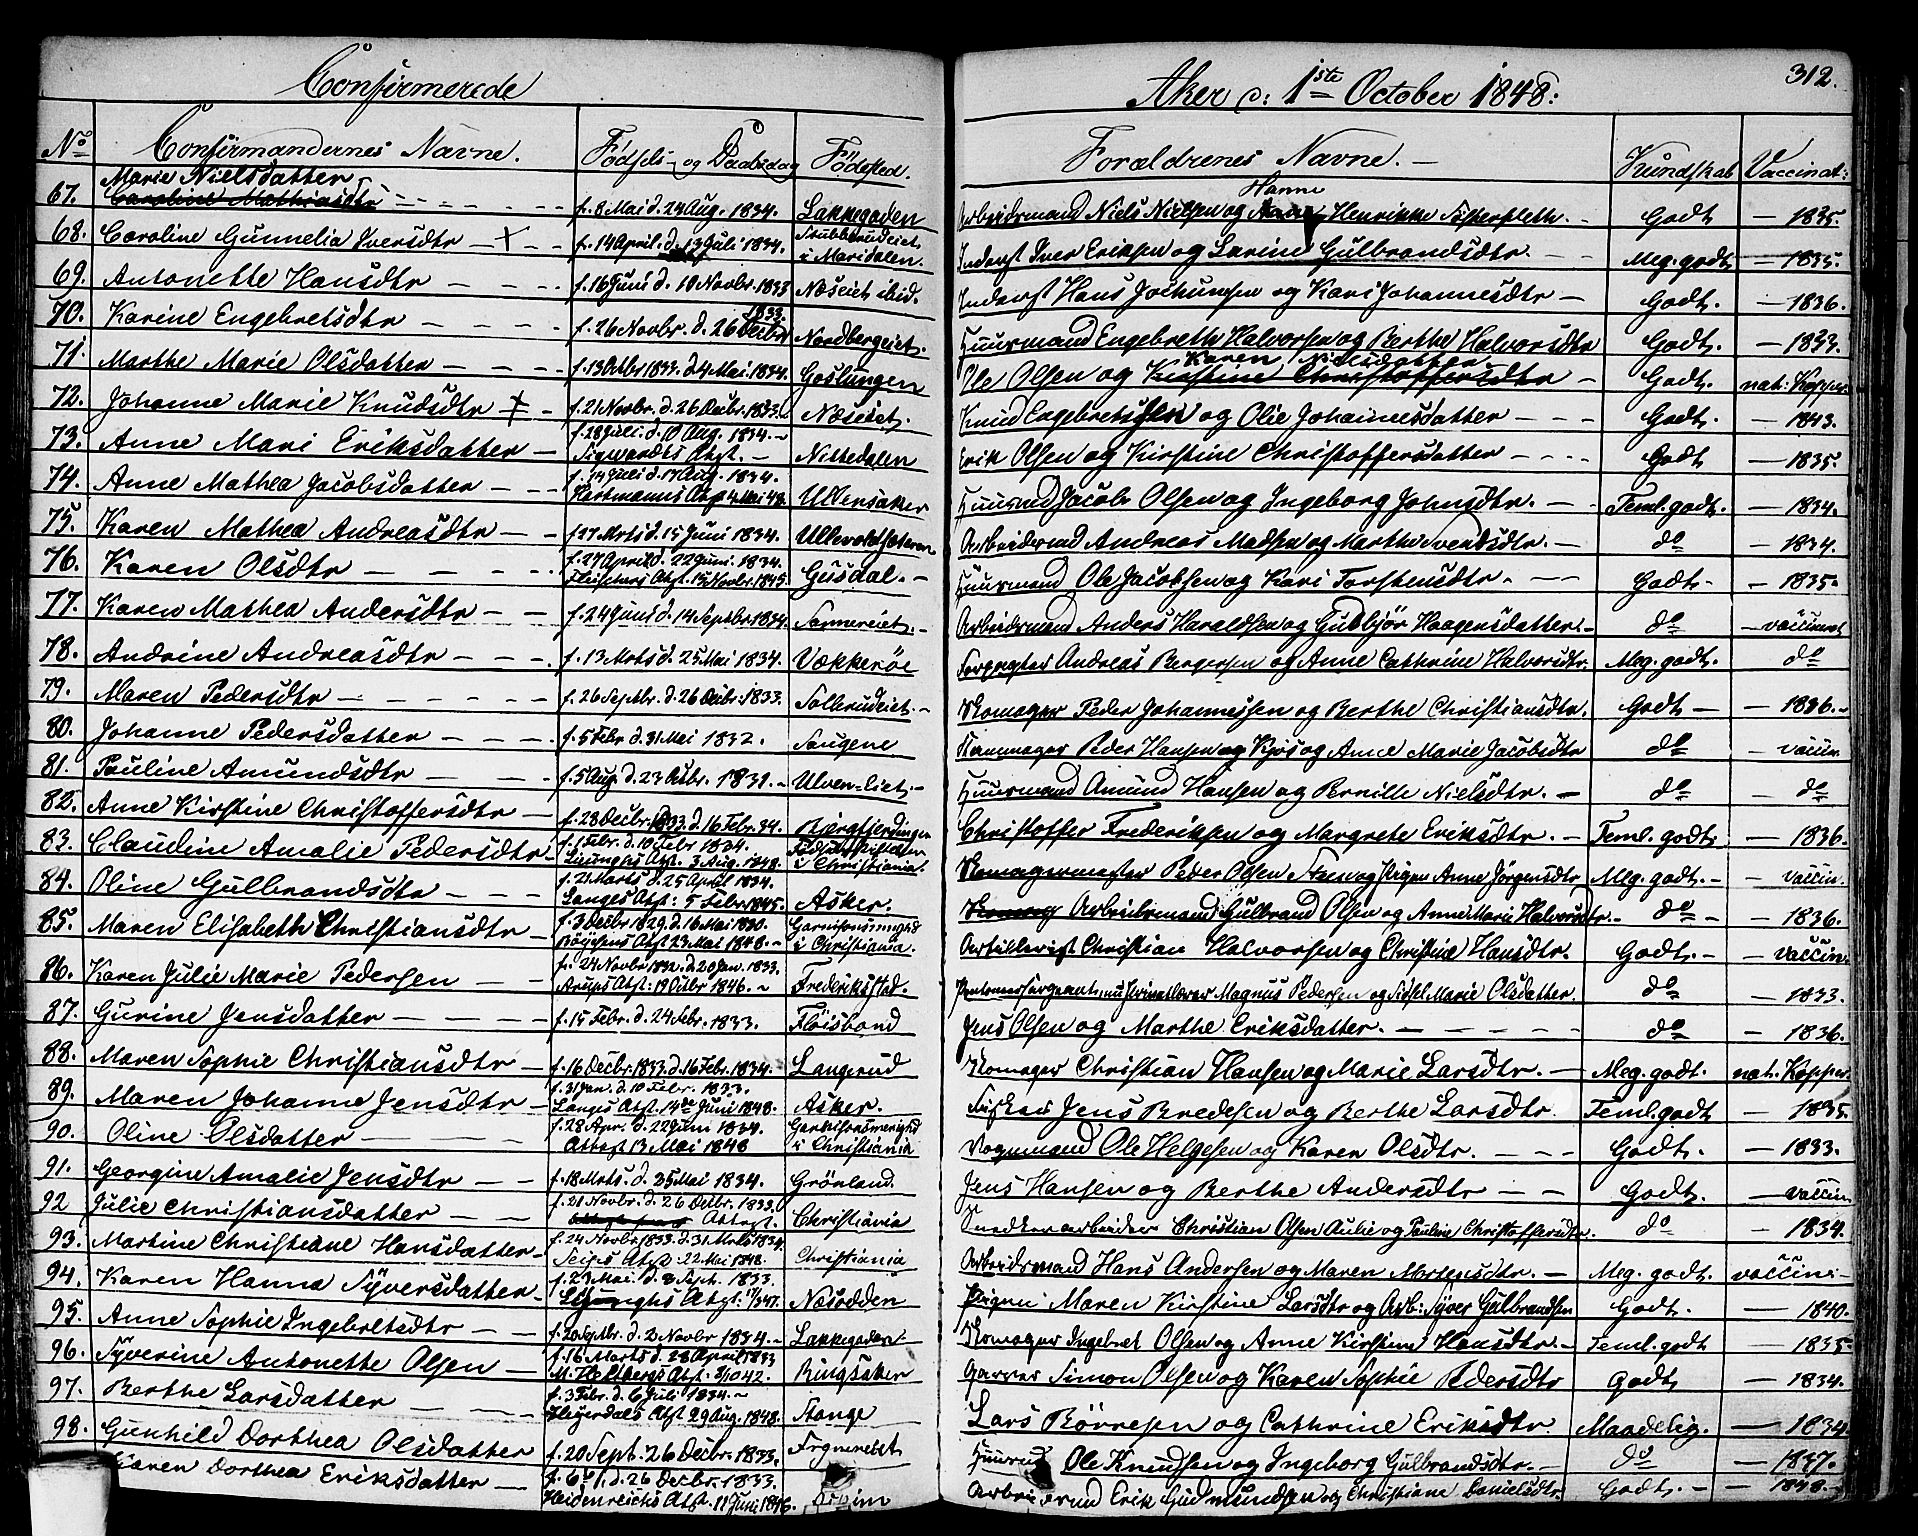 Confirmerede
Aker d: 1ste October 1848:
312.
No Confirmandernes Navne. Fødsels- og Daabsdag Fødested. Forældrenes Navne. Kundskab Vaccinat:
67. Marie Nielsdatter Caroline Mathiasdtr f. 8 Mai d. 24 Aug. 1834. Lakkegaden Arbeidsmand Niels Nielsen og Hanne Henrikke Godt 1835.
68. Caroline Gunnelia Iversdtr f. 14 April. d. 13 Juli 1834. Stubberudeiet i Maridalen. Inderst Iver Eriksen og Larine Gulbrandsdtr. Meg. godt 1835.
69. Antonette Hansdtr f. 16 Juni d. 10 Novbr. 1833 Næseiet ibid. Inderst Hans Jochumsen og Kari Johannesdtr Godt. 1836.
70. Karine Engebretsdtr f. 26 Novbr. d. 26 Decbr 1833. Nordbergeiet. Huusmand Engebreth Halvorsen og Berthe Halvorsdtr Godt. 1833.
71. Marthe Marie Olsdatter f. 13 Octbr 1833. d. 4 Mai 1834. Goslungen Ole Olsen og Karen Nielsdatter Kirstine Christoffersdtr Godt. nat: Kopper
72. Johanne Marie Knudsdtr f. 21 Novbr. d. 26 Decbr. 1833. Næseiet. Knud Engebretsen og Olie Johannesdatter Godt. 1843.
73. Anne Mari Eriksdatter f. 28 Juli. d. 10 Aug. 1834. Sigwardts Atst. Nittedalen Erik Olsen og Kirstine Christoffersdatter Godt 1835.
74. Anne Mathea Jacobsdatter f. 14 Juli d. 17 Aug. 1834. Hartmanns Atst 4 Mai 48. Ullensaker Huusmd Jacob Olsen og Ingeborg Johnsdtr. Teml. godt. 1834.
75. Karen Mathea Andreasdtr f. 27 Mrts d. 15 Juni 1834. Arbeidsmd Andreas Madsen og Marthe Svendsdtr. do 1834.
76. Karen Olsdtr f. 27 April d. 22 Juni. 1834. Fleischers Atst. 15 Novbr. 1845. Gusdal. Huusmand Ole Jacobsen og Kari Torstensdtr. Godt. 1835.
77. Karen Mathea Andersdtr f. 24 Juni d. 14 Septbr. 1834. Arbeidsmand Anders Haraldsen og Gudbjör Haagensdatter. do vaccineret
78. Andrine Andreasdtr f. 13 Mrts d. 25 Mai 1834. Vækkerøe Andreas Bergersen og Anne Cathrine Halvorsdtr. Meg. godt. do
79. Maren Pedersdtr f. 26 Septbr. d. 26 Decbr. 1833. Solbrudeiet. Skomager Peder Johannessen og Berthe Christiansdtr. Godt 1836.
80. Johanne Pedersdatter f. 5 Febr d. 31 Mai 1832. Saugene Peder Hansen og Anne Marie Jacobsdtr do vaccin.
81. Pauline Amundsdtr f. 5 Aug. d. 23 Octbr. 1831. Ulven-Eiet. Huusmand Amund Hansen og Pernille Nielsdtr. do do
82. Anne Kirstine Christoffersdtr f. 28 Decbr. 1833. d. 16 Febr. 34. Bjergfjerdingen Christoffer Frederiksen og Margrete Eriksdtr. Teml. godt 1836.
83. Claudine Amalie Pedersdtr f. 1 Febr. d. 10 Febr 1834. Atst. 3 Aug. 1848. i Christiania. Skomagermester Peder Olsen og Pigen Anne Jørgensdtr Meg. godt. vaccin.
84. Oline Gulbrandsdtr f. 21 Marts d. 25 April 1834. Langes Atst: 5 Febr 1845. Asker. Skomag Arbeidsmand Gulbrand Olsen og Anne Marie Halvorsdtr. do 1836.
85. Maren Elisabeth Christiansdtr f. 3 Decbr 1829. d. 16 Mai 1830. Atst 23 Mai 1848. Garnisonsmenighd i Christiania. Artillerist Christian Halvorsen og Christine Hansdtr. Godt. vaccin.
86. Karen Julie Marie Pedersen f. 24 Novbr 1832. d. 20 Jan. 1833. Arups Atst: 19 Octbr 1846. Frederikstad. Magnus Pedersen og Sissel Marie Olsdatter. do 1833.
87. Gurine Jensdatter f. 15 Febr. d. 24 Febr. 1833. Fløisbond Jens Olsen og Marthe Eriksdatter. do 1836.
88. Maren Sophie Christiansdtr f. 16 Decbr. 1833. d. 16 Febr. 1834. Langerud Skomager Christian Hansen og Marie Larsdtr. Meg. godt. nat. Kopper
89. Maren Johanne Jensdtr f. 31 Jan. d. 10 Febr. 1833. Langes Atst. 14de Juni 1848. Asker. Fisker Jens Bredesen og Berthe Larsdtr. Teml. godt 1835.
90. Oline Olsdatter f. 28 Apr. d. 22 Juni 1834. Attest 13 Mai 1848 Garnisonsmenighd i Christiania Vognmand Ole Helgesen og Karen Olsdtr. Godt. 1833.
91. Georgine Amalie Jensdtr f. 18 Mrts. d. 25 Mai 1834. Grönland Jens Hansen og Berthe Andersdtr Godt. vaccin
92 Julie Christiansdatter f. 21 Novbr. d. 26 Decbr. 1833. Attest. Christiania Snedkerarbeider Christian Olsen Aulie og Pauline Christoffersdtr. do 1834.
93. Martine Christiane Hansdatter f. 24 Novbr. 1833. d. 31 Mrts 1834. Atst 22 Mai 1848. Christiania Arbeidsmand Hans Andersen og Maren Mortensdtr. Meg. godt. vaccin
94. Karen Hanna Syversdatter f. 23 Mai. d. 8 Sept. 1833. Atst: 17/3 47. Næsodden Pigen Maren Kirstine Larsdtr og Arb: Syver Gulbrandsen Godt. 1840.
95. Anne Sophie Ingebretsdtr f. 20 Septbr. d. 2 Novbr 1834. Lakkegaden Skomager Ingebret Olsen og Anne Kirstine Hansdtr. Teml. godt 1835
96. Syverine Antonette Olsen f. 16 Marts d. 28 April 1833 M. Heltbergs Atst: 3/10 42. Ringsaker Garver Simon Olsen og Karen Sophie Pedersdtr Godt 1834.
97. Berthe Larsdatter f. 3 Febr. d. 6 Juli 1834. Heyerdals Atst 29 Aug. 1848. Stange Lars Börresen og Cathrine Eriksdtr. Maadelig. 1834
98. Gunhild Dorthea Olsdatter f. 20 Sept. 26 Decbr. 1833. Frognereiet Huusmd Ole Knudsen og Ingeborg Gulbrandsdtr. do 1837.
Karen Dorthea Eriksdatter d. 26 Decbr. 1833. Heidenreichs Atst. 11 Juni 1848. Erik Gudmundsen og Christiane Danielsdtr. Godt. 1848.